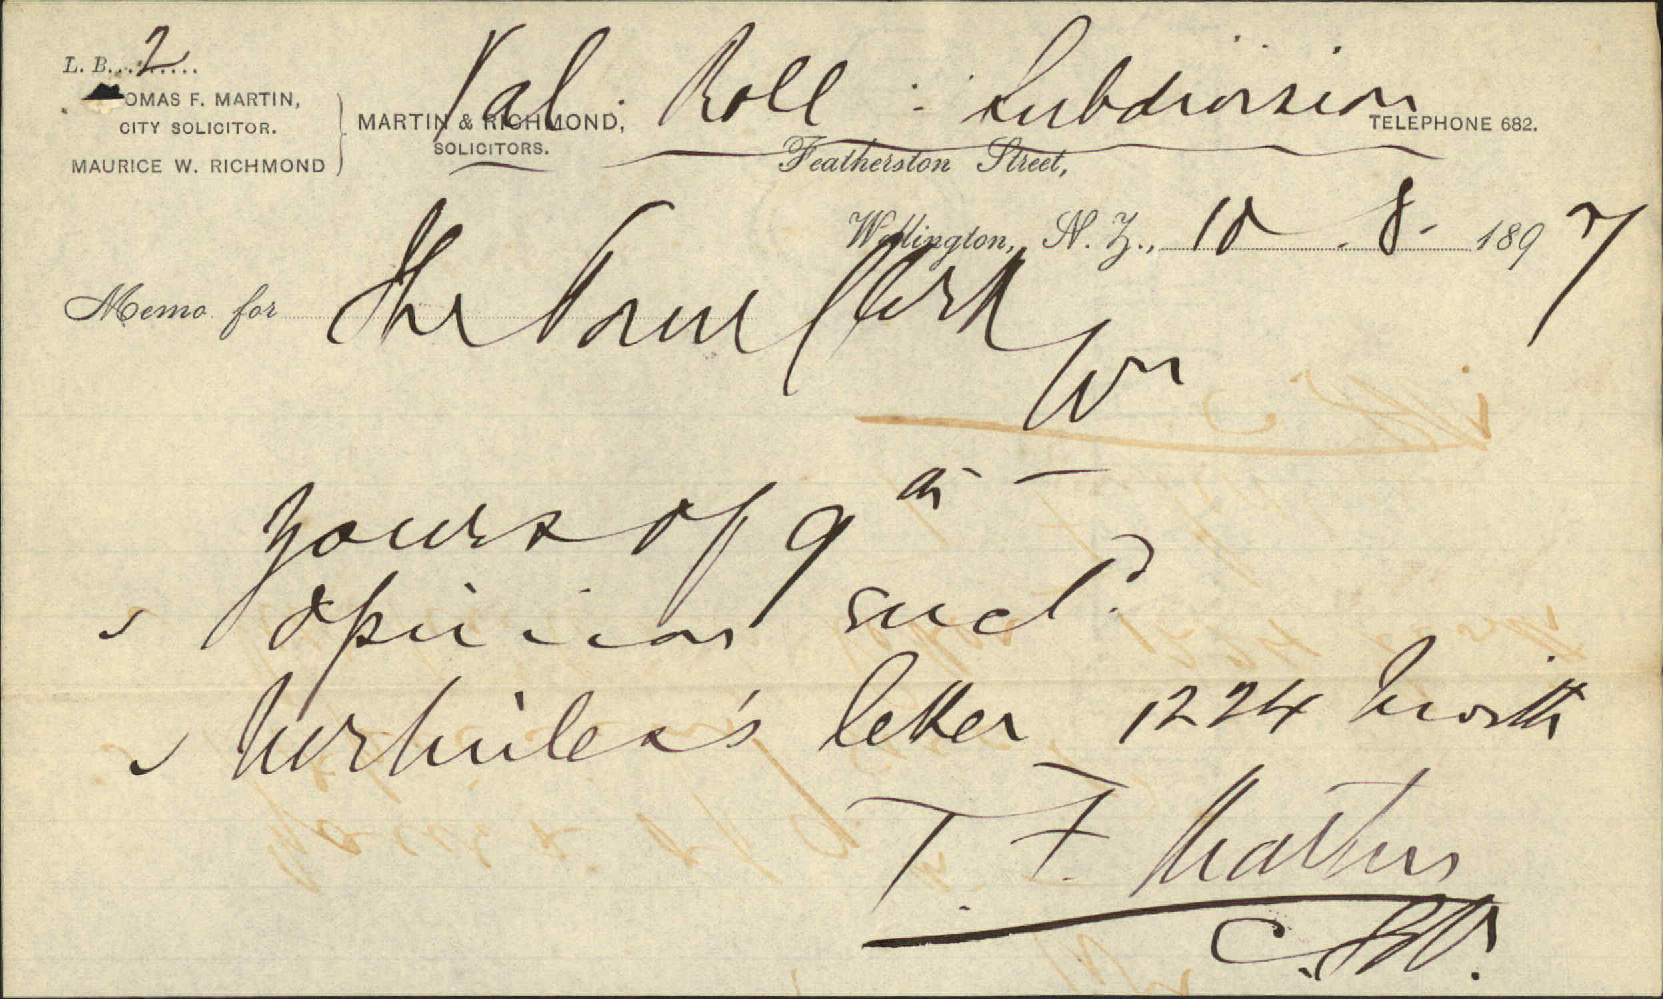 L. B. 2
Val. Roll : Subdivision
THOMAS F. MARTIN,
CITY SOLICITOR.
MAURICE W. RICHMOND
MARTIN & RICHMOND,
SOLICITORS.
TELEPHONE 682.
Featherston Street,
Wellington, N. Z., 10 . 8. 1897
Memo for The Town Clerk
Wn
Yours of 9th —
Opinion encld.
letter 1224 herewith
T. F. Martin
C. Sol.